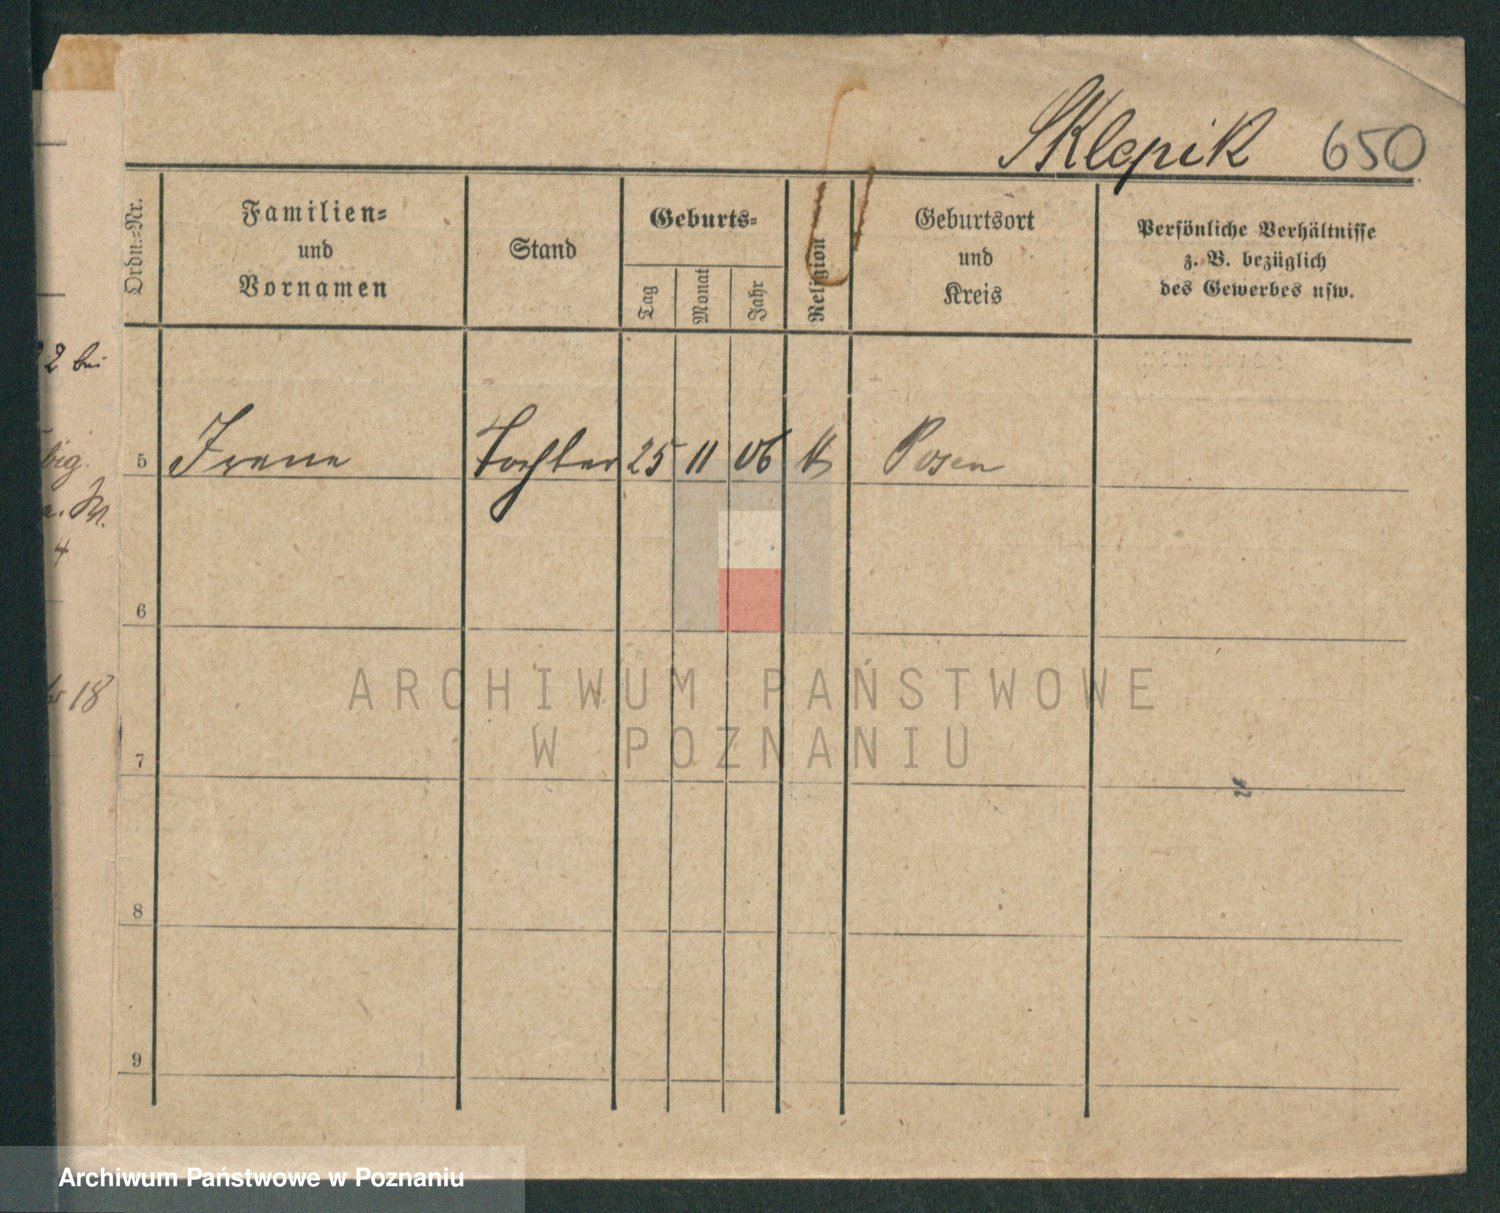 Sklepik 650
Ordn.=Nr.
Familien=
und
Vornamen
Stand
Geburts=
Tag
Monat
Jahr
Religion
Geburtsort
und
Kreis
Persönliche Verhältnisse
z. B. bezüglich
des Gewerbes usw.
2 bei
5 Irene Tochter 25 11 06 K Posen
6
4
18
7
8
9
ARCHIWUM PAŃSTWOWE
W POZNANIU
Archiwum Państwowe w Poznaniu